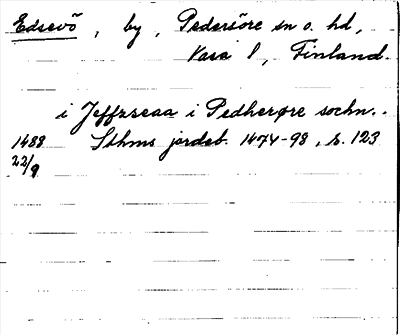 Edsevö, by, Pedersöre sn o. hd,
Vasa l, Finland.
i Jeffzseaa i Pedherøre sochn.
1488 Sthms jordeb. 1474-98, s. 123
22/9